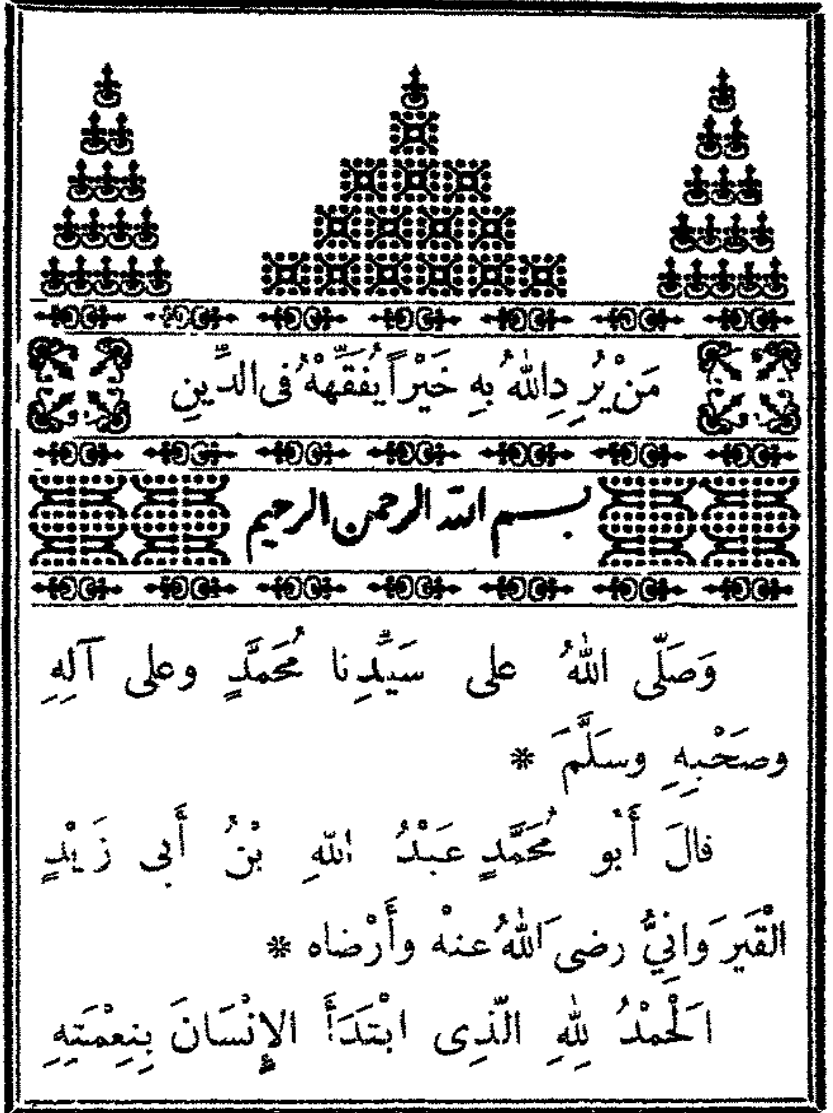 مَنْ يُرِدِ اللهُ بِهِ خَيْرًا يُفَقِّهْهُ فى الدِّينِ
بسم الله الرحمن الرحيم
وَصَلَّى اللهُ على سَيِّدِنا مُحَمَّدٍ وعلى آلِهِ
وصَحْبِهِ وسَلَّمَ *
قالَ أَبُو مُحَمَّدٍ عَبْدُ اللهِ بْنُ أَبى زَيْدٍ
الْقَيرَوانِيُّ رضىَ اللهُ عنهْ وأَرْضاه *
اَلْحَمْدُ لِلهِ الَّذِى ابْتَدَأَ الإِنْسَانَ بِنِعْمَتِهِ